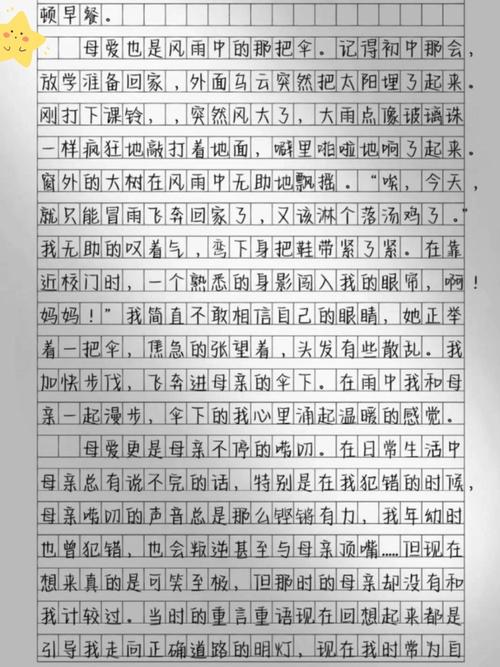 顿早餐。
母爱也是风雨中的那把伞。记得初中那会,
放学准备回家,,外面乌云突然把太阳埋了起来。
刚打下课铃,,突然风大了,大雨点像玻璃珠
一样疯狂地敲打着地面,噼里啪啦地响了起来。
窗外的大树在风雨中无助地飘摇。“唉,今天,
就只能冒雨飞奔回家了,又该淋个落汤鸡了。”
我无助的叹着气,弯下身把鞋带紧了紧。在靠
近校门时,一个熟悉的身影闯入我的眼帘,啊!
妈妈!”我简直不敢相信自己的眼睛,她正举
着一把伞,焦急的张望着,头发有些散乱。我
加快步伐,飞奔进母亲的伞下。在雨中我和母
亲一起漫步,伞下的我心里涌起温暖的感觉。
母爱更是母亲不停的唠叨。在日常生活中
母亲总有说不完的话,特别是在我犯错的时候,
母亲唠叨的声音总是那么铿锵有力,我年幼时
也曾犯错,也会叛逆甚至与母亲顶嘴……但现在
想来真的是可笑至极,但那时的母亲却没有和
我计较过。当时的重言重语现在回想起来都是
引导我走向正确道路的明灯,现在我时常为自